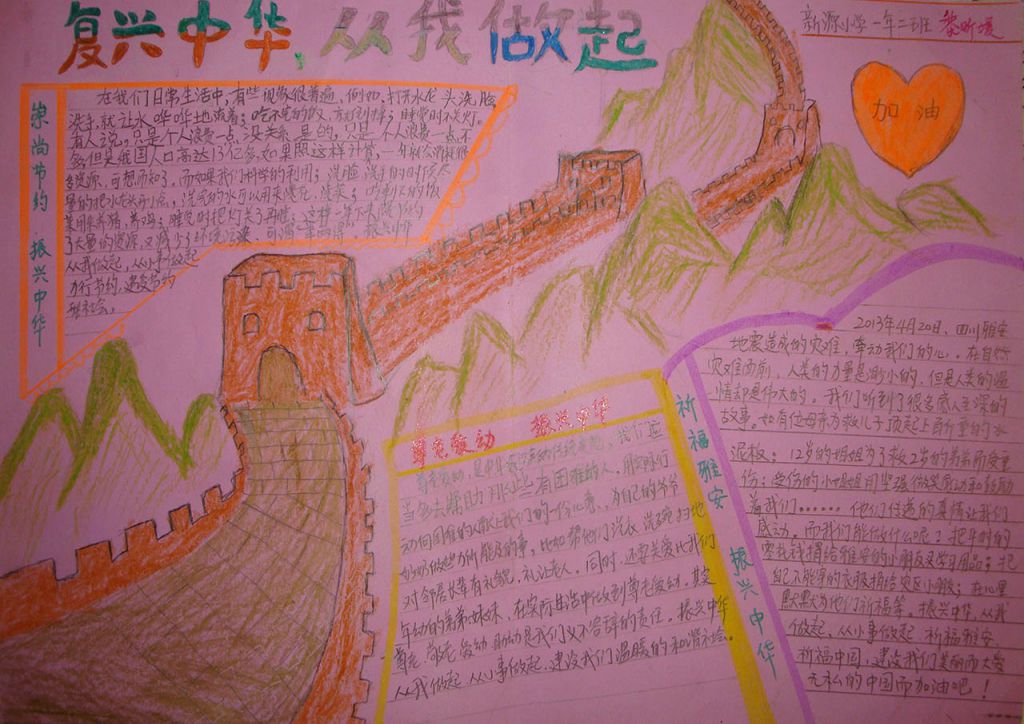 复兴中华,从我做起
新源小学一年二班
加油
崇尚节约 振兴中华
在我们日常生活中,有些现象很普遍,例如,打开水龙头洗脸
洗手,就让水哗哗地流着;吃不完的饭,就倒掉;睡觉时不关灯。
有人说,只是个人浪费一点,没关系。是的,只是一个人浪费一点不
多,但是我国人口高达13亿多,如果照这样计算,一年就会消耗很
多资源,可想而知了。而如果我们科学的利用;洗脸洗手的时候尽
量的把水龙头开小点,洗完的水可以用来浇花,洗菜;吃剩下的饭
菜用来养猪,养鸡;睡觉时把灯关了再睡;这样一年下来
了大量的资源,又减少了环境污染,可谓一举两得。振兴中华
从我做起,从小事做起
力行节约,建设节约
型社会。
尊老爱幼 振兴中华
尊老爱幼,是中华民族的传统美德,我们应
当多去帮助那些有困难的人,用实际行
动向困难的人献上我们的一份心意。为自己的爷爷
奶奶做些力所能及的事,比如帮他们洗衣洗碗扫地
对邻居长辈有礼貌,礼让老人。同时,还要关爱比我们
年幼的弟弟妹妹,在实际生活中做到尊老爱幼。其实
尊老敬老爱幼助幼是我们义不容辞的责任。振兴中华
从我做起,从小事做起,建设我们温暖的和谐社会。
祈福雅安 振兴中华
2013年4月20日,四川雅安
地震造成的灾难,牵动我们的心。在自然
灾难面前,人类的力量是渺小的,但是人类的温
情却是伟大的。我们听到了很多感人至深的
故事。如有位母亲为救儿子顶起上百斤重的水
泥板;12岁的姐姐为了救2岁的弟弟而受重
伤;受伤的小姐姐用坚强微笑感动和鼓励
着我们……他们传递的真情让我们
感动。而我们能做什么呢?把平时的
零花钱捐给雅安的小朋友买学习用品;把
自己不能穿的衣服捐给灾区小朋友;在心里
默默为他们祈福等。振兴中华,从我
做起,从小事做起,祈福雅安
祈福中国,建设我们美丽而大爱
无私的中国而加油吧!